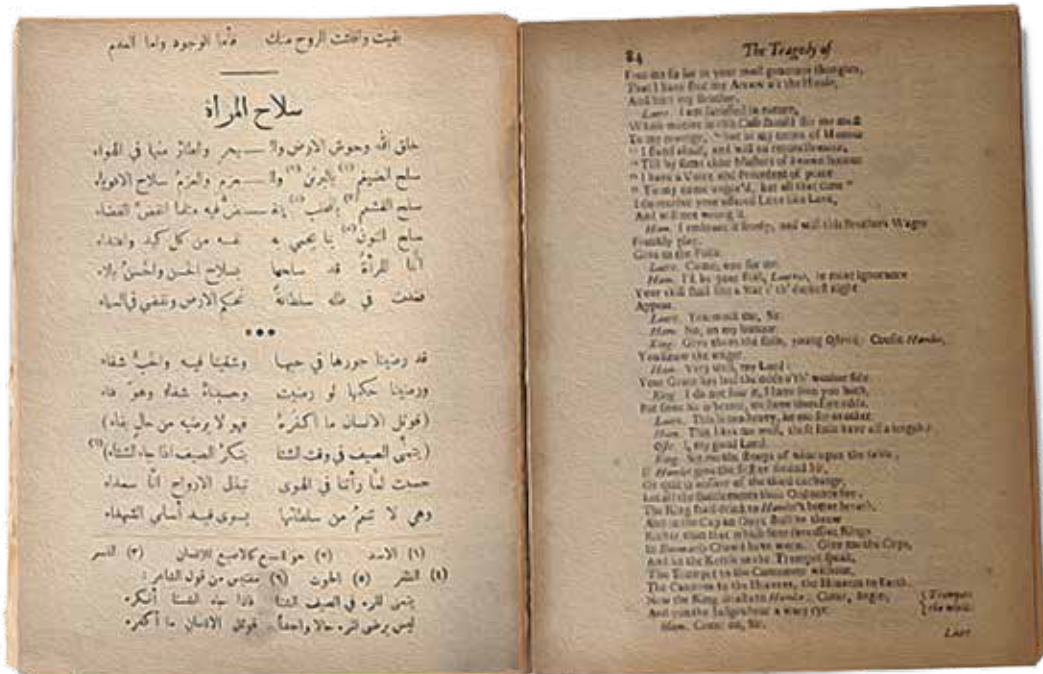 بقيت وافنت الروح منك فأما الوجود واما العدم
سلاح المرأة
خلق الله وحوش الارض والـ ـبحر والطائر منها في الهواء
سلح الضيغم (١) بالبرثن (٢) والـ ـعزم والعزم سلاح الاقوياء
سلح القشعم (٣) بالمخلب (٤)
سلح النون (٥) بما يحمي به نفسه من كل كيد واعتداء
أنما المرأة قد سلحها بسلاح الحسن والحسن بلاء
فغدت في ظله سلطانة تحكم الارض وتقضي في السماء
•••
قد رضينا جورها في حبها وشقينا فيه والحب شقاء
ورضينا حكمها لو رضيت وحسبناه شفاء وهو داء
(قوتل الانسان ما اكفره فهو لا يرضيه من حال بقاء)
(يتمنى الصيف في وقت الشتا ينكر الصيف اذا جاء الشتاء) (٦)
حسبت لما رأتنا في الهوى نبذل الارواح انّا سعداء
وهي لا تعلم من سلطانها يسوى فيه أسامي الشهداء
(١) الاسد (٢) هو للسبع كالاصبع للانسان (٣) النسر
(٤) الظفر (٥) الحوت (٦) مقتبس من قول الشاعر :
يتمنى المرء في الصيف الشتا فاذا جاء الشتا أنكره
ليس يرضى المرء حالا واحداً قوتل الانسان ما أكفره
84 The Tragedy of
Free me so far in your most generous thoughts,
That I have shot my Arrow o're the House,
And hurt my Brother.
Laer. I am satisfied in nature,
Whose motive in this Case should stir me most
To my revenge, " but in my terms of Honour
" I stand aloof, and will no reconcilement,
" Till by some elder Masters of known honour
" I have a Voice and President of peace
" To my name ungor'd, but all that time "
I do receive your offered Love like Love,
And will not wrong it.
Ham. I embrace it freely, and will this Brothers Wager
Frankly play.
Give us the Foils.
Laer. Come, one for me.
Ham. I'll be your Foil, Laertes, in mine ignorance
Your skill shall like a Star i' th' darkest night
Appear.
Laer. You mock me, Sir.
Ham. No, on my honour.
King. Give them the foils, young Ostrick; Cousin Hamlet,
You know the wager.
Ham. Very well, my Lord:
Your Grace has laid the odds o'th' weaker side.
King. I do not fear it, I have seen you both,
But since he is better, we have therefore odds.
Laer. This is too heavy, let me see another.
Ham. This likes me well, these foils have all a length?
Ostr. I, my good Lord.
King. Set me the stoops of wine upon the table;
If Hamlet give the first or second hit,
Or quit in answer of the third exchange,
Let all the Battlements their Ordnance fire,
The King shall drink to Hamlet's better breath,
And in the Cup an Onyx shall he throw
Richer than that which four successive Kings
In Denmark's Crown have worn. Give me the Cups,
And let the Kettle to the Trumpet speak,
The Trumpet to the Cannoneer without,
The Cannons to the Heavens, the Heavens to Earth.
Now the King drinks to Hamlet: Come, begin,
And you the Judges bear a wary eye.
{Trumpets
{the while.
Ham. Come on, Sir.
Laer